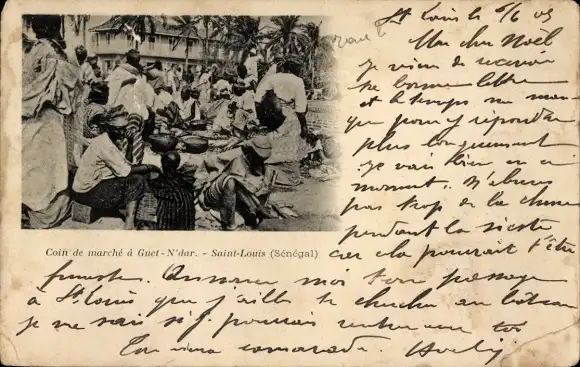 St Louis le 5/6 05
Mon cher Noël
Je viens de recevoir
ta bonne lettre
et le temps me manque
pour y répondre
plus longuement
Je vais bien en ce
moment. N'abuse
pas trop de la
pendant la sieste
Coin de marché à Guet-N'dar. - Saint-Louis (Sénégal)
car cela pourrait t'être
funeste. Annonce moi ton passage
à St Louis que j'aille te chercher au bateau
je ne sais si je pourrais rentrer avec toi
Ton vieux camarade.